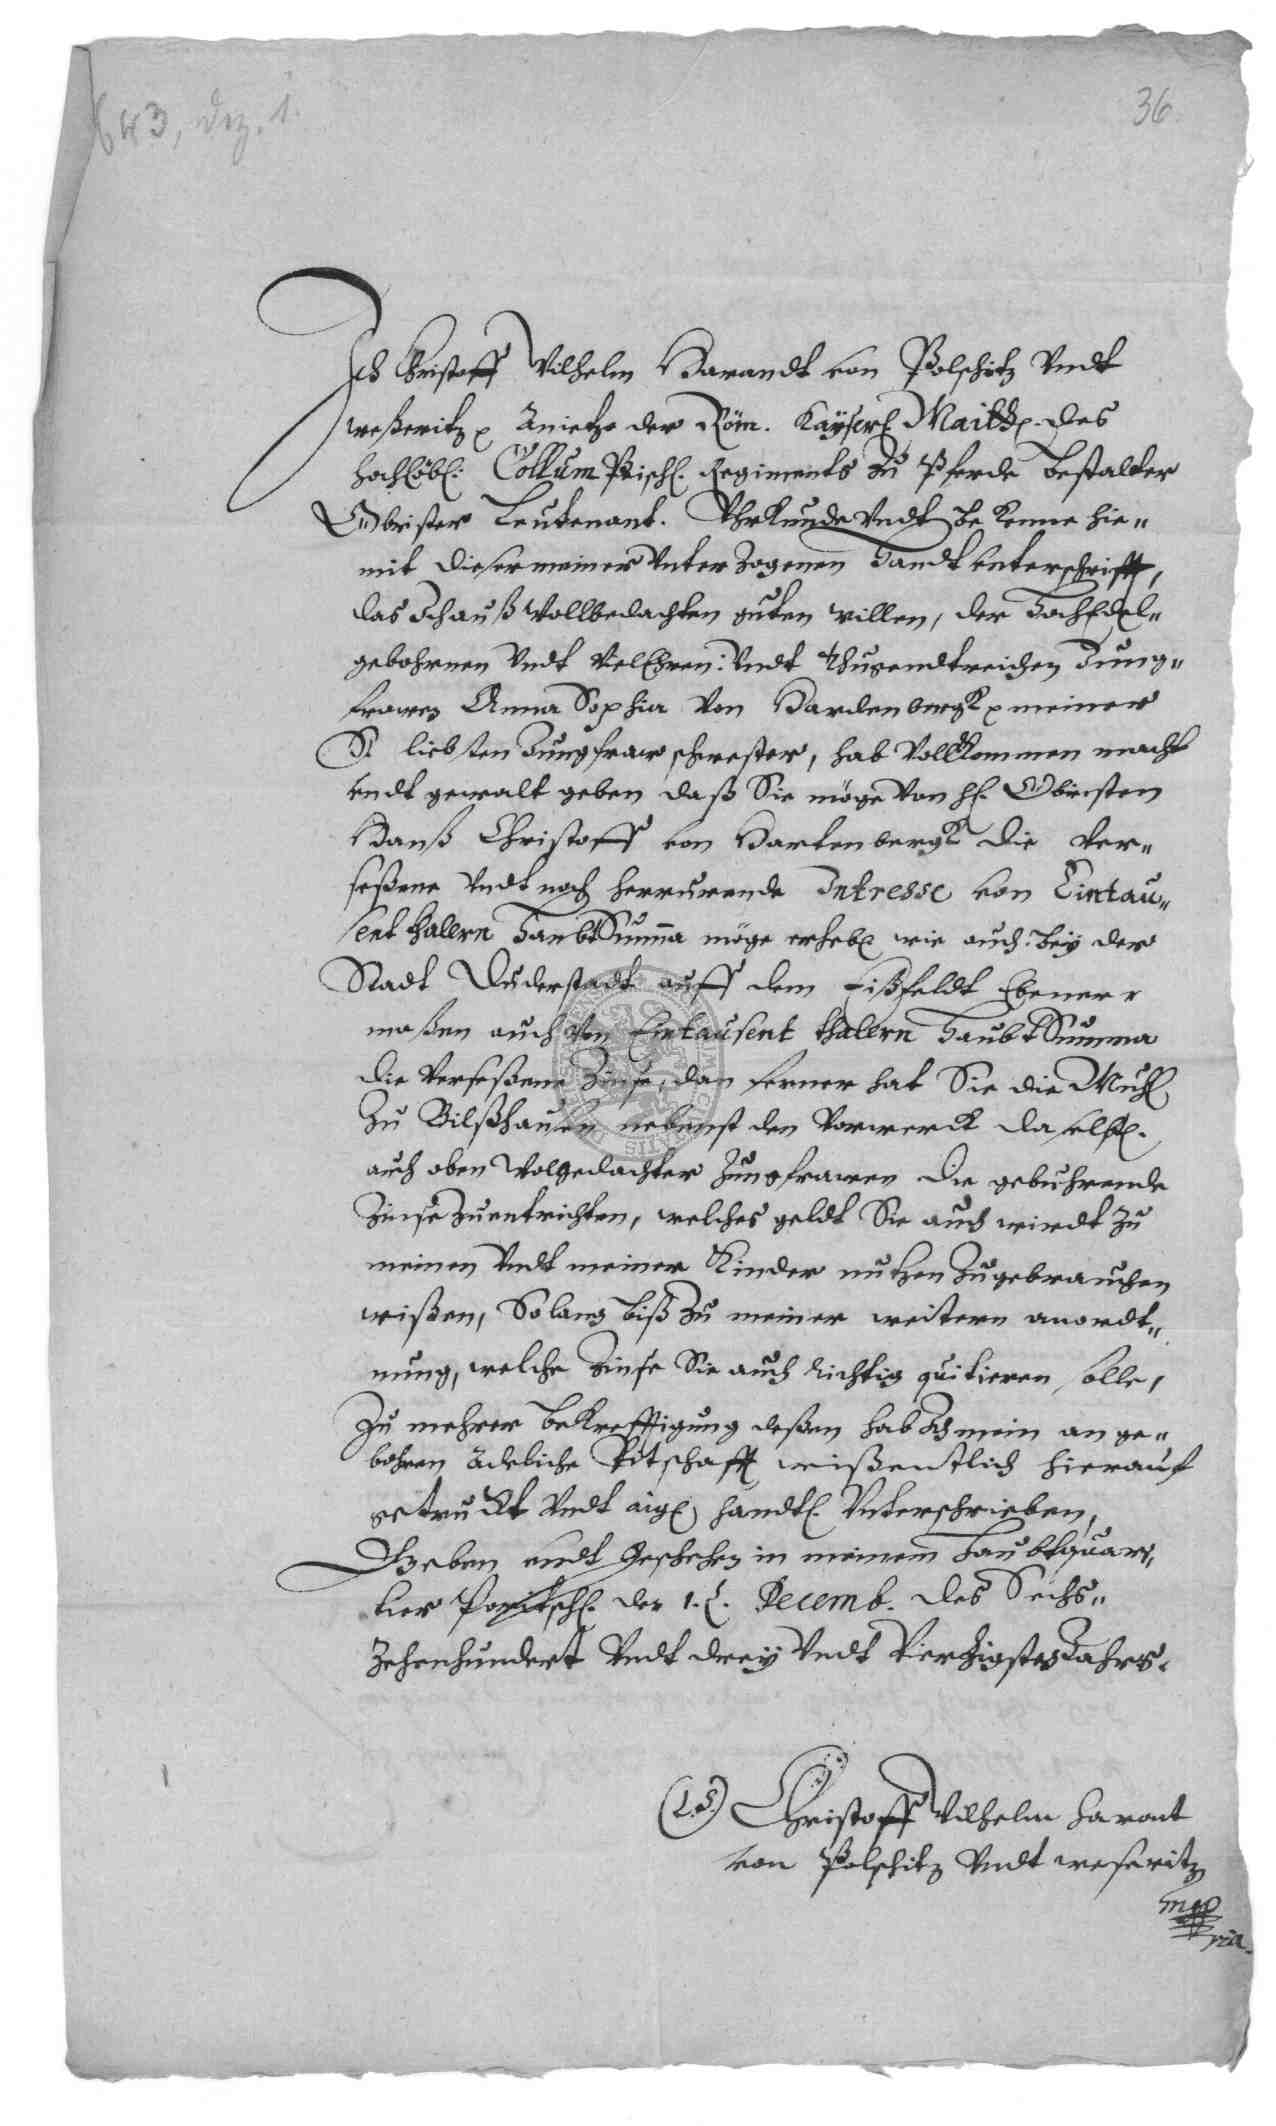 643, Dez. 1.
36
Ich Christoff Wilhelm Harandt von Polschitz Vndt
weßeritz p Anietzo der Röm. Kaÿserl Maitt p. des
hochlöbl: Collum Regiments Zu Pferde bestalter
Obrister Leutenant. Vhrkunde Vndt be kenne hie„
mit dieser meiner Vnter Zogenen Handt Vnterschrifft,
das Ich auß Wollbedachten guten willen, der HochEdel„
gebohrnen Vndt VielEhren: Vndt thugendtreichen Jung„
frawen Anna Sophia Von Hardenbergk p meiner
liebsten Jungfraw schwester, hab Vollkommen macht
Vndt gewalt geben daß Sie möge Von H. Obristen
Hanß Christoff von Hartenbergk die Ver„
seßene Vndt noch herrurende Intresse von Eintau„
sent thalern HaubtSumma möge erheben wie auch: beÿ der
Stadt Duderstadt auff dem Eißfeldt Ebener
maßen auch Von Eintausent thalern HaubtSumma
die Verseßene Zinse, dan ferner hat Sie die Muhl
Zu Bilßhausen nebenst den Vorwerck daselbst.
auch oben Wolgedachter Jungfrawen die gebuhrende
Zinse Zuentrichten, welches geldt Sie auch wirdt Zu
meinen Vndt meiner Kinder nutzen Zugebrauchen
wißen, So lang biß Zu meiner weitern anordt„
nung, welche Zinse Sie auch richtig quitieren solle,
Zu mehrer bekrefftigung deßen hab Ich mein an ge„
bohren Adeliche Pitschafft wißentlich hierauf
getruckt Vndt aig handtl. Vnterschrieben,
Geben Vndt Geschehen in meinem Haubtquar„
tier den 1. Decemb. des Sechs„
Zehenhundert Vndt dreÿ Vndt Vierzigsten Jahrs.
(L.S.) Christoff Wilhelm Harant
von Polschitz Vndt weseritz
mpp
ria.